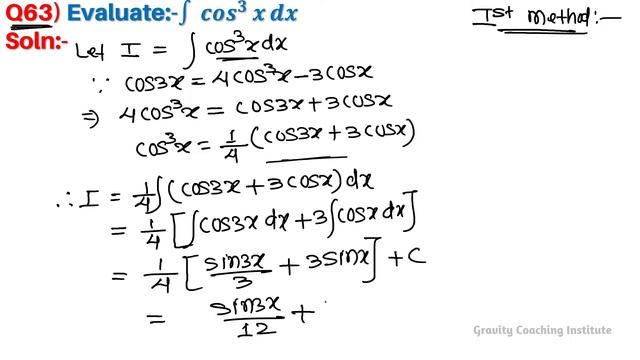 Q63) Evaluate:-∫ cos³ x dx
Ist Method:—
Soln:- Let I = ∫ cos³x dx
∵ cos3x = 4cos³x - 3cosx
⇒ 4cos³x = cos3x + 3cosx
cos³x = 1/4 (cos3x + 3cosx)
∴ I = 1/4 ∫(cos3x + 3cosx) dx
= 1/4 [∫cos3x dx + 3∫cosx dx]
= 1/4 [sin3x/3 + 3sinx] + C
= sin3x/12 +
Gravity Coaching Institute